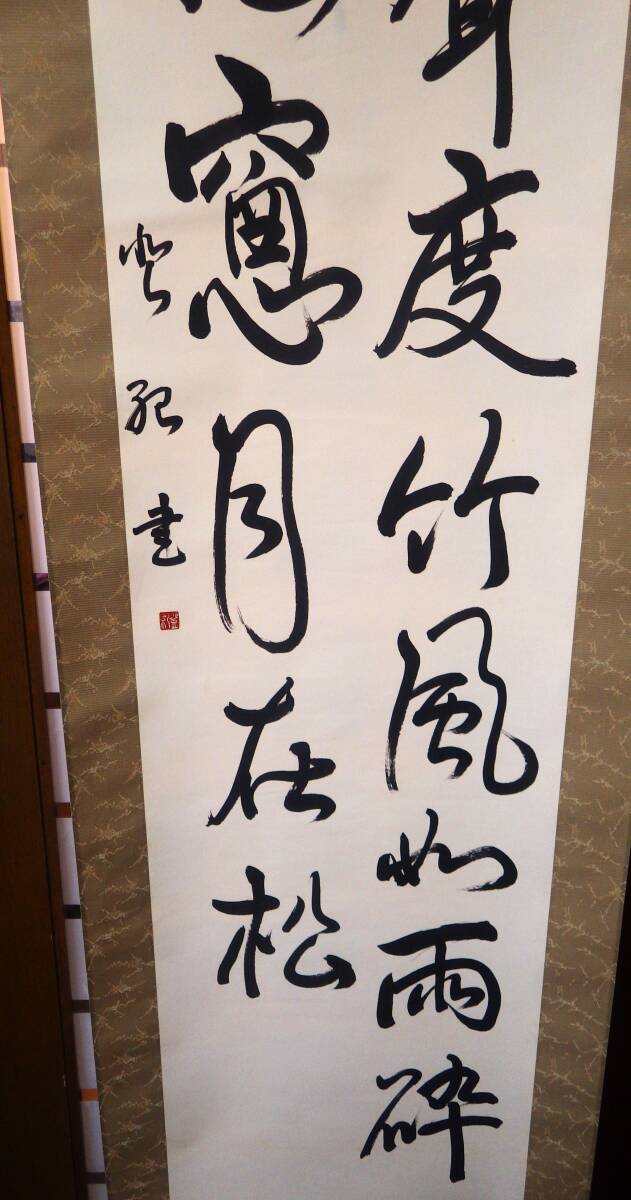 度竹風如雨碎
窻月在松
書